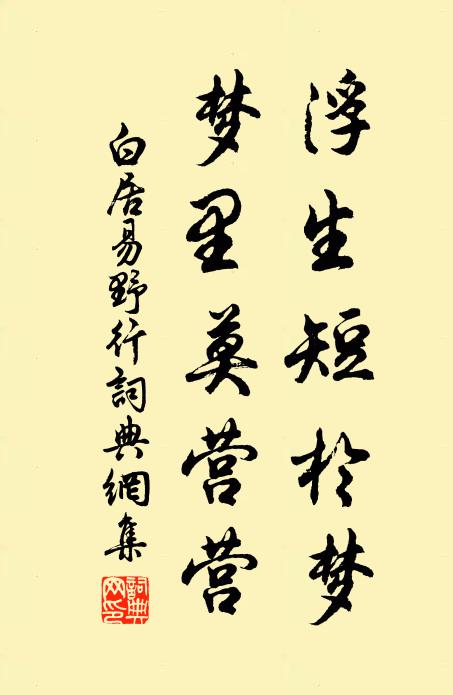 浮生短於梦
梦里莫营营
白居易野行詞典網集
詞典网印